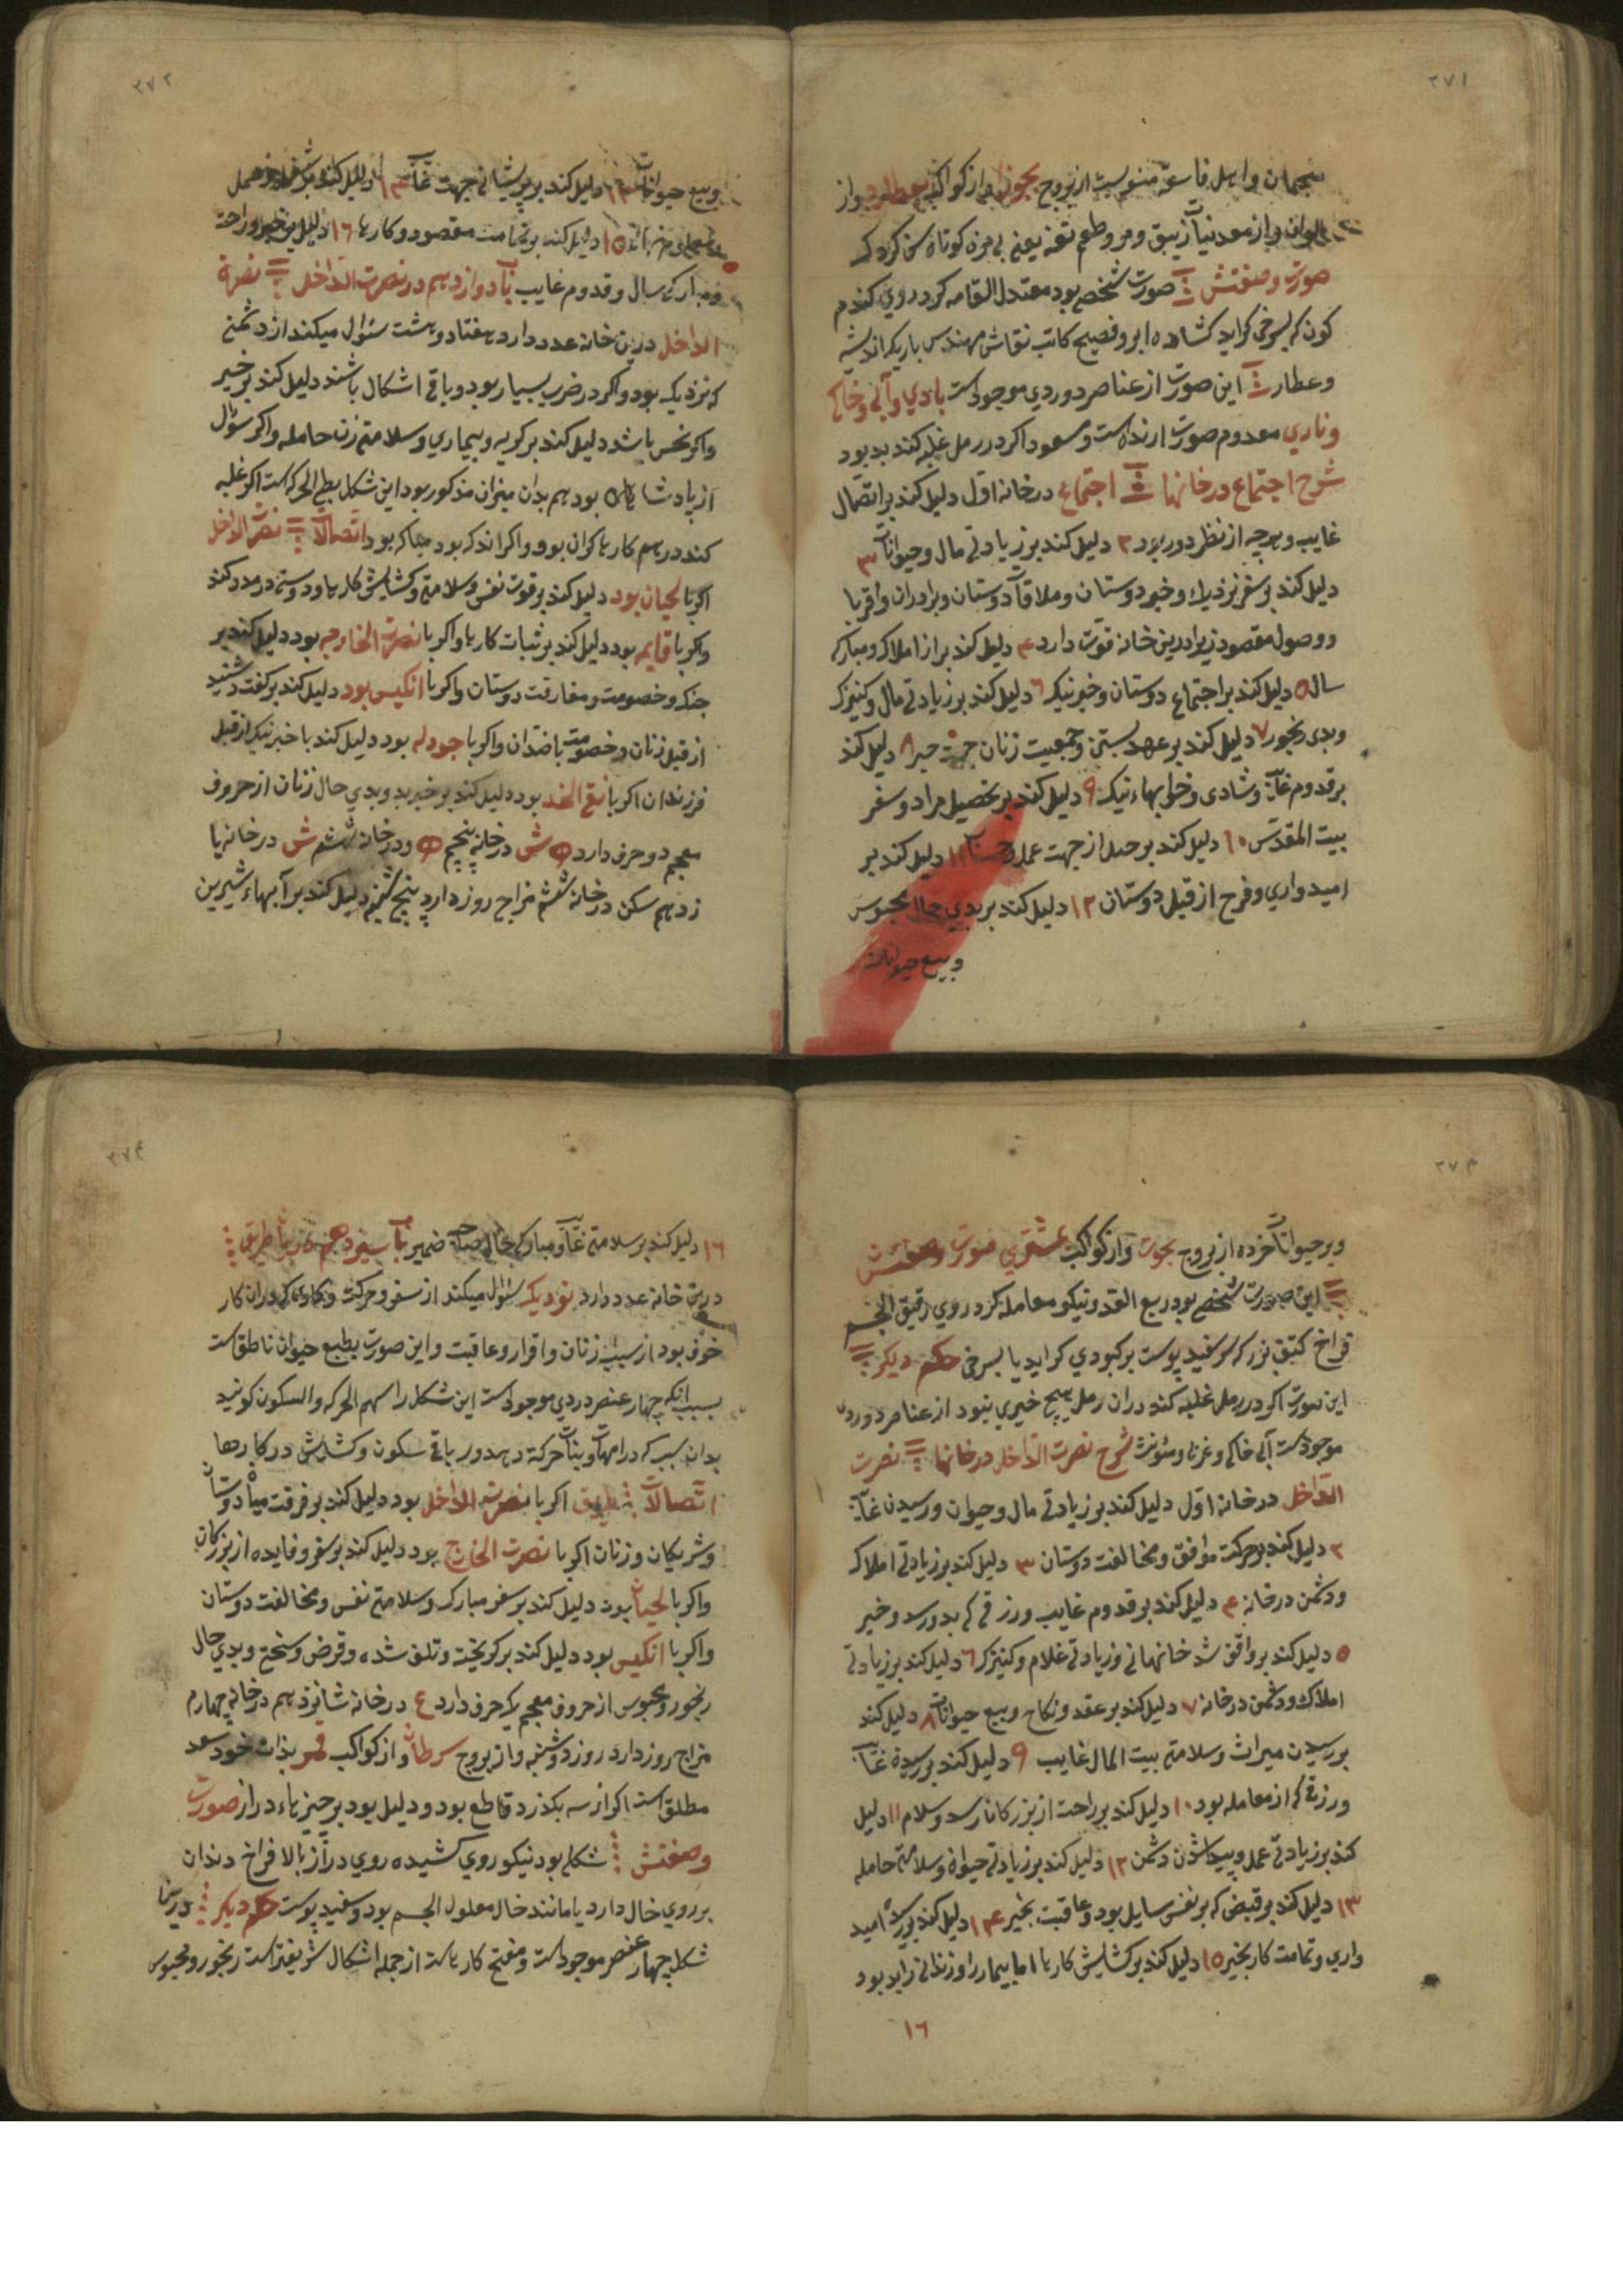 ۲۷۱
منجمان و اهل فاسق منسوبست از بروج بجوزا و از کواکب بعطارد و از
الوان و از معدنیات زیبق و مر و طعم تفه یعنی بی مزه کوتاه سخن کردک
صورت و صفتش صورت شخصی بود معتدل القامه کرد روی کندم
کون که بسرخی کراید کشاده ابرو فصیح کاتب نقاش مهندس باریک اندیشه
و عطار این صورت از عناصر دوردی موجودست بادی و آبی و خاکی
و ناری معدوم صورت ارنده است و مسعود اکر در رمل غلبه کند بد بود
شرح اجتماع در خانها اجتماع در خانه اول دلیل کند بر اتصال
غایب و هرچه از نظر دور بود ۲ دلیل کند بر زیادتی مال و حیوانات ۳
دلیل کند بر سفر نزدیک و خبر دوستان و ملاقات دوستان و برادران و اقربا
و وصول مقصود زیرا درین خانه قوت دارد ۴ دلیل کند بر از املاک و مبارکی
سال ۵ دلیل کند بر اجتماع دوستان و خبر نیک ۶ دلیل کند بر زیادتی مال و کنیزک
و بدی رنجور ۷ دلیل کند بر عهد بستن و جمعیت زنان جهت خیر ۸ دلیل کند
بر قدوم غایب و شادی و خوابهاء نیک ۹ دلیل کند بر تحصیل مراد و سفر
بیت المقدس ۱۰ دلیل کند بر جهت عمل و ۱۱ دلیل کند بر
امیدواری و فرح از قبل دوستان ۱۲ دلیل کند بر بدی حال محبوس
و بیع حیوانات
۲۷۲
و بیع حیوانات ۱۳ دلیل کند بر پریشانی جهت غایب ۱۴ دلیل کند بر
۱۵ دلیل کند بر تمامت مقصود و کارها ۱۶ دلیل بر خیر و راحت
و مبارکی سال و قدوم غایب باب دوازدهم در نصرت الداخل نصرة
الداخل درین خانه عدد دارد هفتاد و هشت سئوال میکند از دشمنی
که نزدیک بود و اکر در ضرب بسیار بود و باقی اشکال باشند دلیل کند بر خیر
و اکر نحس باشد دلیل کند بر کریه و بیماری و سلامتی زن حامله و اکر سؤال
از پادشاهان بود هم بدان میزان مذکور بود این شکل بطی الحرکه است اکر غلبه
کند در رسم کارها کران بود و اکر اندکه بود مبارکه بود اتصالات نصرت الداخل
اکر با لحیان بود دلیل کند بر قوت نفس و سلامتی و کشایش کارها و دوستی در مدد کند
و اکر با قایم بود دلیل کند بر ثبات کارها و اکر با نصرت الخارجه بود دلیل کند بر
جنک و خصومت و مفارقت دوستان و اکر با انکیس بود دلیل کند بر کفت و شنید
از قبل زنان و خصومت با ضدان و اکر با جودله بود دلیل کند با خبر نیک از قبل
فرزندان اکر با نقی الخد بود دلیل کند بر خبر بد و بدی حال زنان از حروف
معجم دو حرف دارد ه ش در خانه پنجم ه و در خانه ششم ش در خانه یا
زدهم سکن در خانه ششم مزاج روز دارد پنج شنبه دلیل کند بر آبهاء شیرین
۲۷۳
و بر حیوانات خرده از بروج بحوت و از کواکب مشتری صورت و صفتش
این صورت شخصی بود ربع القد و نیکو معامله کرد روی رقیق الجسم
فراخ کتف بزرک سر سفید پوست بر کبودی کراید یا بسرخی حکم دیکر
این صورت اکر در رمل غلبه کند در آن رمل هیچ خیری نبود از عناصر دوردی
موجودست آبی خاکی و غربی و مؤنث شرح نصرت الداخل در خانها نصرت
الداخل در خانه اول دلیل کند بر زیادتی مال و حیوان و رسیدن غایب
۲ دلیل کند بر حرکت موافق و مخالفت دوستان ۳ دلیل کند بر زیادتی املاک
و دشمن در خانه ۴ دلیل کند بر قدوم غایب و رزقی که بدو رسد و خیر
۵ دلیل کند بر واقف شد خانهمانی و زیادتی غلام و کنیزک ۶ دلیل کند بر زیادتی
املاک و دشمن در خانه ۷ دلیل کند بر عقد و نکاح و بیع حیوانات ۸ دلیل کند
بر رسیدن میراث و سلامتی بیت المال غایب ۹ دلیل کند بر رسیدن غایب
و رزقی که از معامله بود ۱۰ دلیل کند بر راحت از بزرکان رسد و سلام ۱۱ دلیل
کند بر زیادتی عمل و پیدا شدن دشمن ۱۲ دلیل کند بر زیادتی حیواة و سلامتی حامله
۱۳ دلیل کند بر قبض که بر نفس سایل بود و عاقبت بخیر ۱۴ دلیل کند بر رسد امید
واری و تمامت کار بخیر ۱۵ دلیل کند بر کشایش کارها اما بیمار را و زندانی را بد بود
۱۶
۲۷۴
۱۶ دلیل کند بر سلامتی غایب و مبارکی حال صاحب ضمیر باب سیزدهم در طریق
درین خانه عدد دارد نود یک سئوال میکند از سفر و حرکت و کاری که در آن کار
خوف بود از سبب زنان و اقرار و عاقبت و این صورت بطبع حیوان ناطق است
بسبب آنکه چهار عنصر دردی موجودست این شکل را سهم الحرکه و السکون کویند
بدان سبب که در امهات و بنات حرکة دهد و در باقی سکون و کشایش در کارها
اتصالات طریق اکر با نصرت الداخل بود دلیل کند بر فرقت میان دوستان
و شریکان و زنان اکر با نصرت الخارج بود دلیل کند بر سفر و فایده از بزرکان
و اکر با لحیان بود دلیل کند بر سفر مبارک و سلامتی نفس و مخالفت دوستان
و اکر با انکیس بود دلیل کند بر کریخته و تلف شده و قرض و سختی و بدی حال
رنجور و محبوس از حروف معجم یک حرف دارد ع در خانه شانزدهم در خانه چهارم
مزاج روز دارد روز دوشنبه و از بروج سرطان و از کواکب قمر بذات خود سعد
مطلق است اکر از سه بکذرد قاطع بود و دلیل بود بر چیزهاء دراز صورت
و صفتش شکلی بود نیکو روی کشیده روی دراز بالا فراخ دندان
بر روی خال دارد یا مانند خال معلول الجسم بود و سفید پوست حکم دیکر درین
شکل چهار عنصر موجودست و مفتح کارهاست از جمله اشکال شریفترست رنجور و محبوس